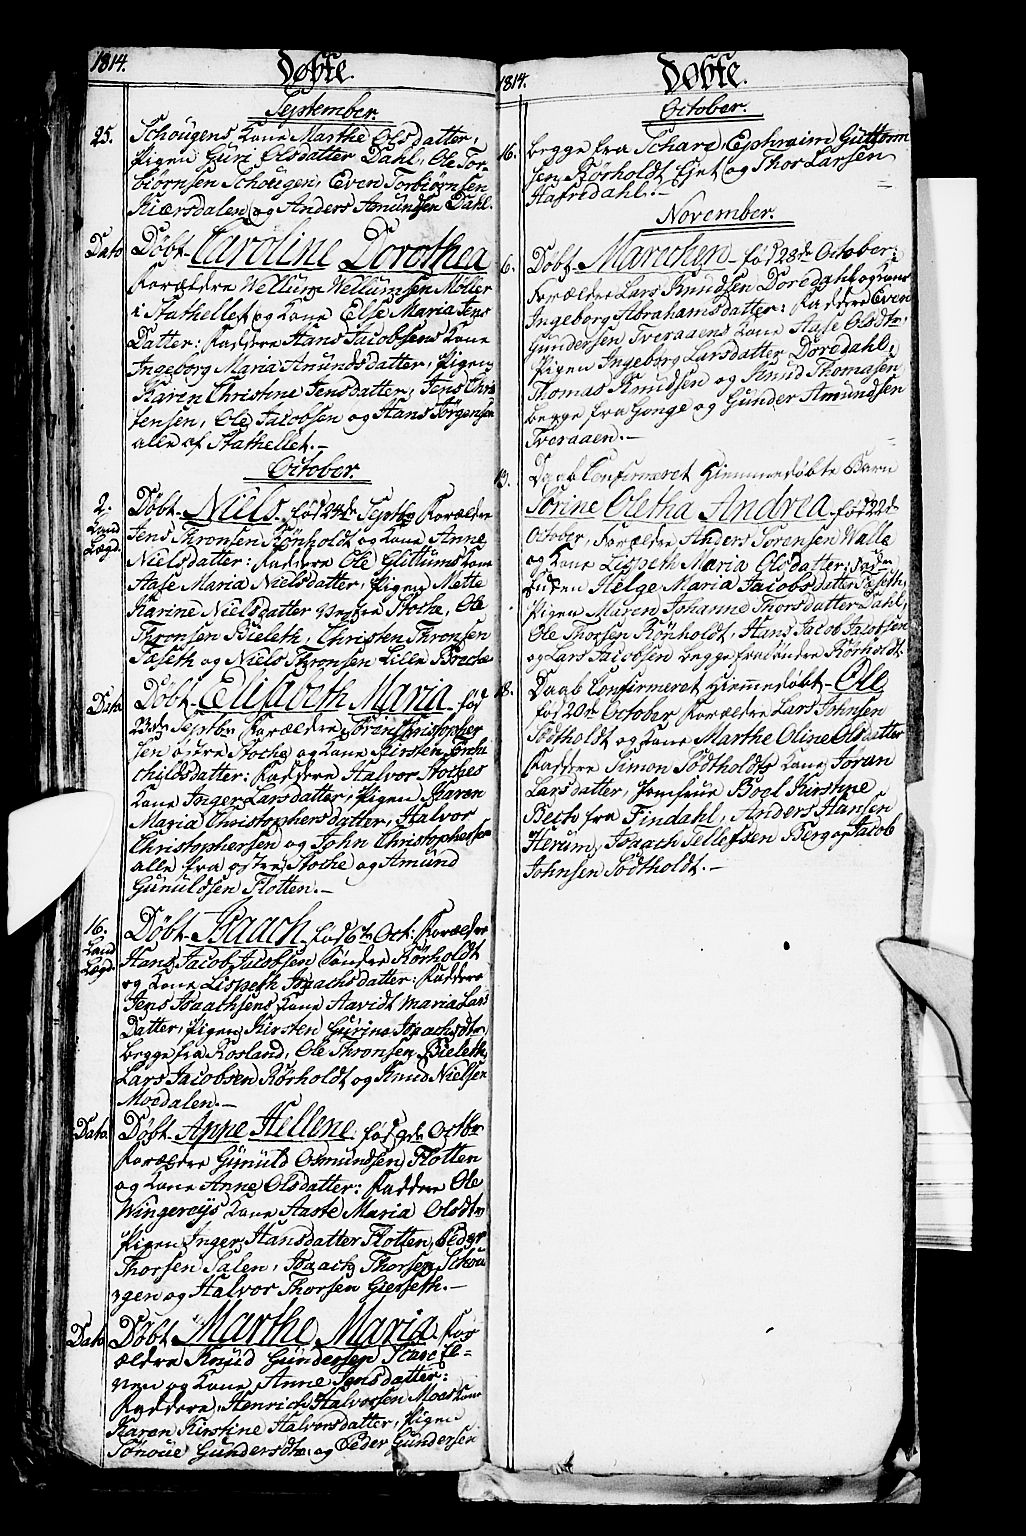 1814.
Døbte.
September.
25. Schougens Kone Marthe Olsdatter,
Pigen Guri Olsdatter Dahl, Ole Tor-
biørnsen Schougen, Even Torbiørnsen
Kiærsdalen og Anders Amundsen Dahl.
Dato Døbt Caroline Dorothea
Forældre Wellum Wellumsen Møller
i Stathellet og Kone Else Maria Jens
Datter: Faddere Hans Jacobsens Kone
Ingeborg Maria Amundsdatter, Pigen
Karen Christine Jensdatter, Jens Chris
tensen, Ole Jacobsen og Hans Jørgensen
alle af Stathellet.-
October.
2. Døbt Niels fød 24de Septbr Forældre
Land Jens Thronsen Rønholdt og Kone Anne
Lægd. Nielsdatter: Faddere Ole Glittums Kone
Aase Maria Nielsdatter, Pigen Mette
Karine Nielsdatter Stocke, Ole
Thronsen Bieleth, Christen Thronsen
Faseth og Niels Thronsen Lille
Dato Døbt Elisabeth Maria fød
23de Septbr Forældre Christopher
sen Stocke og Kone Kirsten
childsdatter: Faddere Halvor Stockes
Kone Inger Larsdatter, Pigen Karen
Maria Christophersdatter, Halvor
Christophersen og John Christophersen
alle fra Stocke og Amund
Gunuldsen Flotten.-
16. Døbt Isaach fød 6te Oct: Forældre
Land Hans Jacob Jacobsen Søndre Rørholdt
Lægd. og Kone Lispeth Isaachsdatter: Faddere
Jens Isaachsens Kone Aavidt Maria Lars
Datter, Pigen Kirsten Gurine Isaachsdtr,
begge fra Rosland, Ole Thronsen Bieleth,
Lars Jacobsen Rørholdt og Knud Nielsen
Moedalen.-
Dato Døbt Anne Hellene fød 9de Octbr
Forældre Gunuld Osmundsen Flotten
og Kone Anne Olsdatter: Faddere Ole
Wingereijs Kone Aaste Maria Olsdtr
Pigen Inger Hansdatter Flotten, Peder
Thorsen Salen, Isaach Thorsen Schou
gen og Halvor Thorsen Gierseth.-
Dato Døbt Marthe Maria For
ældre Knud Gundersen
og Kone Anne Jensdatter:
Faddere Henrich Halvorsen Moes Kone
Karen Kirstine Halvorsdatter, Pigen
Gundersdtr og Peder Gundersen
1814.
Døbte.
October.
16. begge fra Schare, Ephraim Guttorm
sen Rørholdt Ejet og Thor Larsen
Hafredahl.-
November.
6. Døbt Marichen fød 28de October:
Forældre Lars Knudsen Doredahl og Kone
Ingeborg Abrahamsdatter: Faddere Even
Gundersen Tveraaens Kone Aase Olsdtr,
Pigen Ingeborg Larsdatter Doredahl,
Thomas Knudsen og Knud Thomasen
begge fra Gonge og Gunder Amundsen
Tveraaen.-
13. Daab Confirmeret Hiemmedøbte Barn
Sørine Oletha Andrea fød 22de
October, Forældre Anders Sørensen Walle
og Kone Lispeth Maria Olsdatter: Fad-
Helge Maria Jacobsdatter
Pigen Maren Johanne Thorsdatter Dahl,
Ole Thorsen Rønholdt, Hans Jacob Jacobsen
og Lars Jacobsen begge fra Søndre Rørholdt.
18. Daab Confirmeret Hiemmedøbt Ole
fød 20de October Forældre Lars Johnsen
Sødtholdt og Kone Marthe Oline Olsdatter
Faddere Simon Sødtholdts Kone Jøran
Larsdatter, Jomfrue Boel Kirstine
Bech fra Findahl, Anders Hansen
Herum, Isaach Tellefsen Berg og Jacob
Johnsen Sødtholdt.-